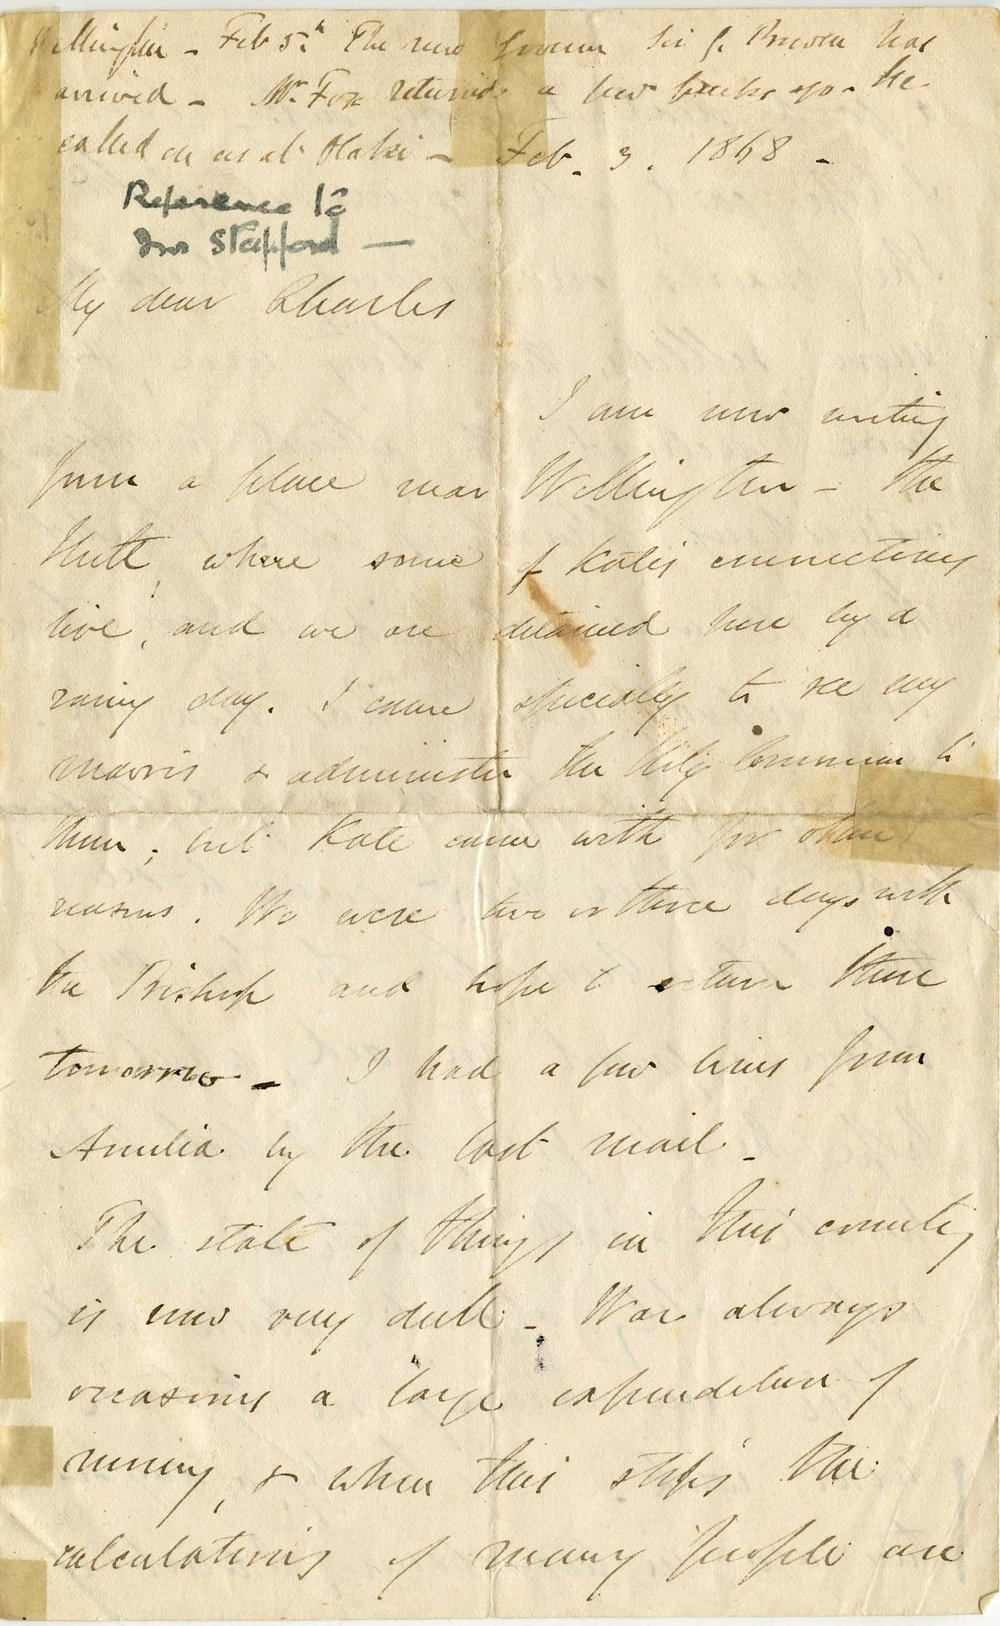 Wellington - Feb 5th The new Governor Sir G. Bowen has
arrived - Mr. Fox returned a few weeks ago - he
called on us at Otaki - Feb. 3. 1868 -
Reference to
Mrs Stafford —
My dear Charles
I am now writing
from a place near Wellington - the
Hutt, where some of Kate's connections
live, and we are detained here by a
rainy day. I came specially to see my
maoris & administer the Holy Communion to
them; but Kate came with for other
reasons. We were two or three days with
the Bishop and hope to return there
tomorrow - I had a few lines from
Amelia by the last mail -
The state of things in this country
is now very dull - War always
occasions a large expenditure of
money, & when this stops the
calculations of many people are